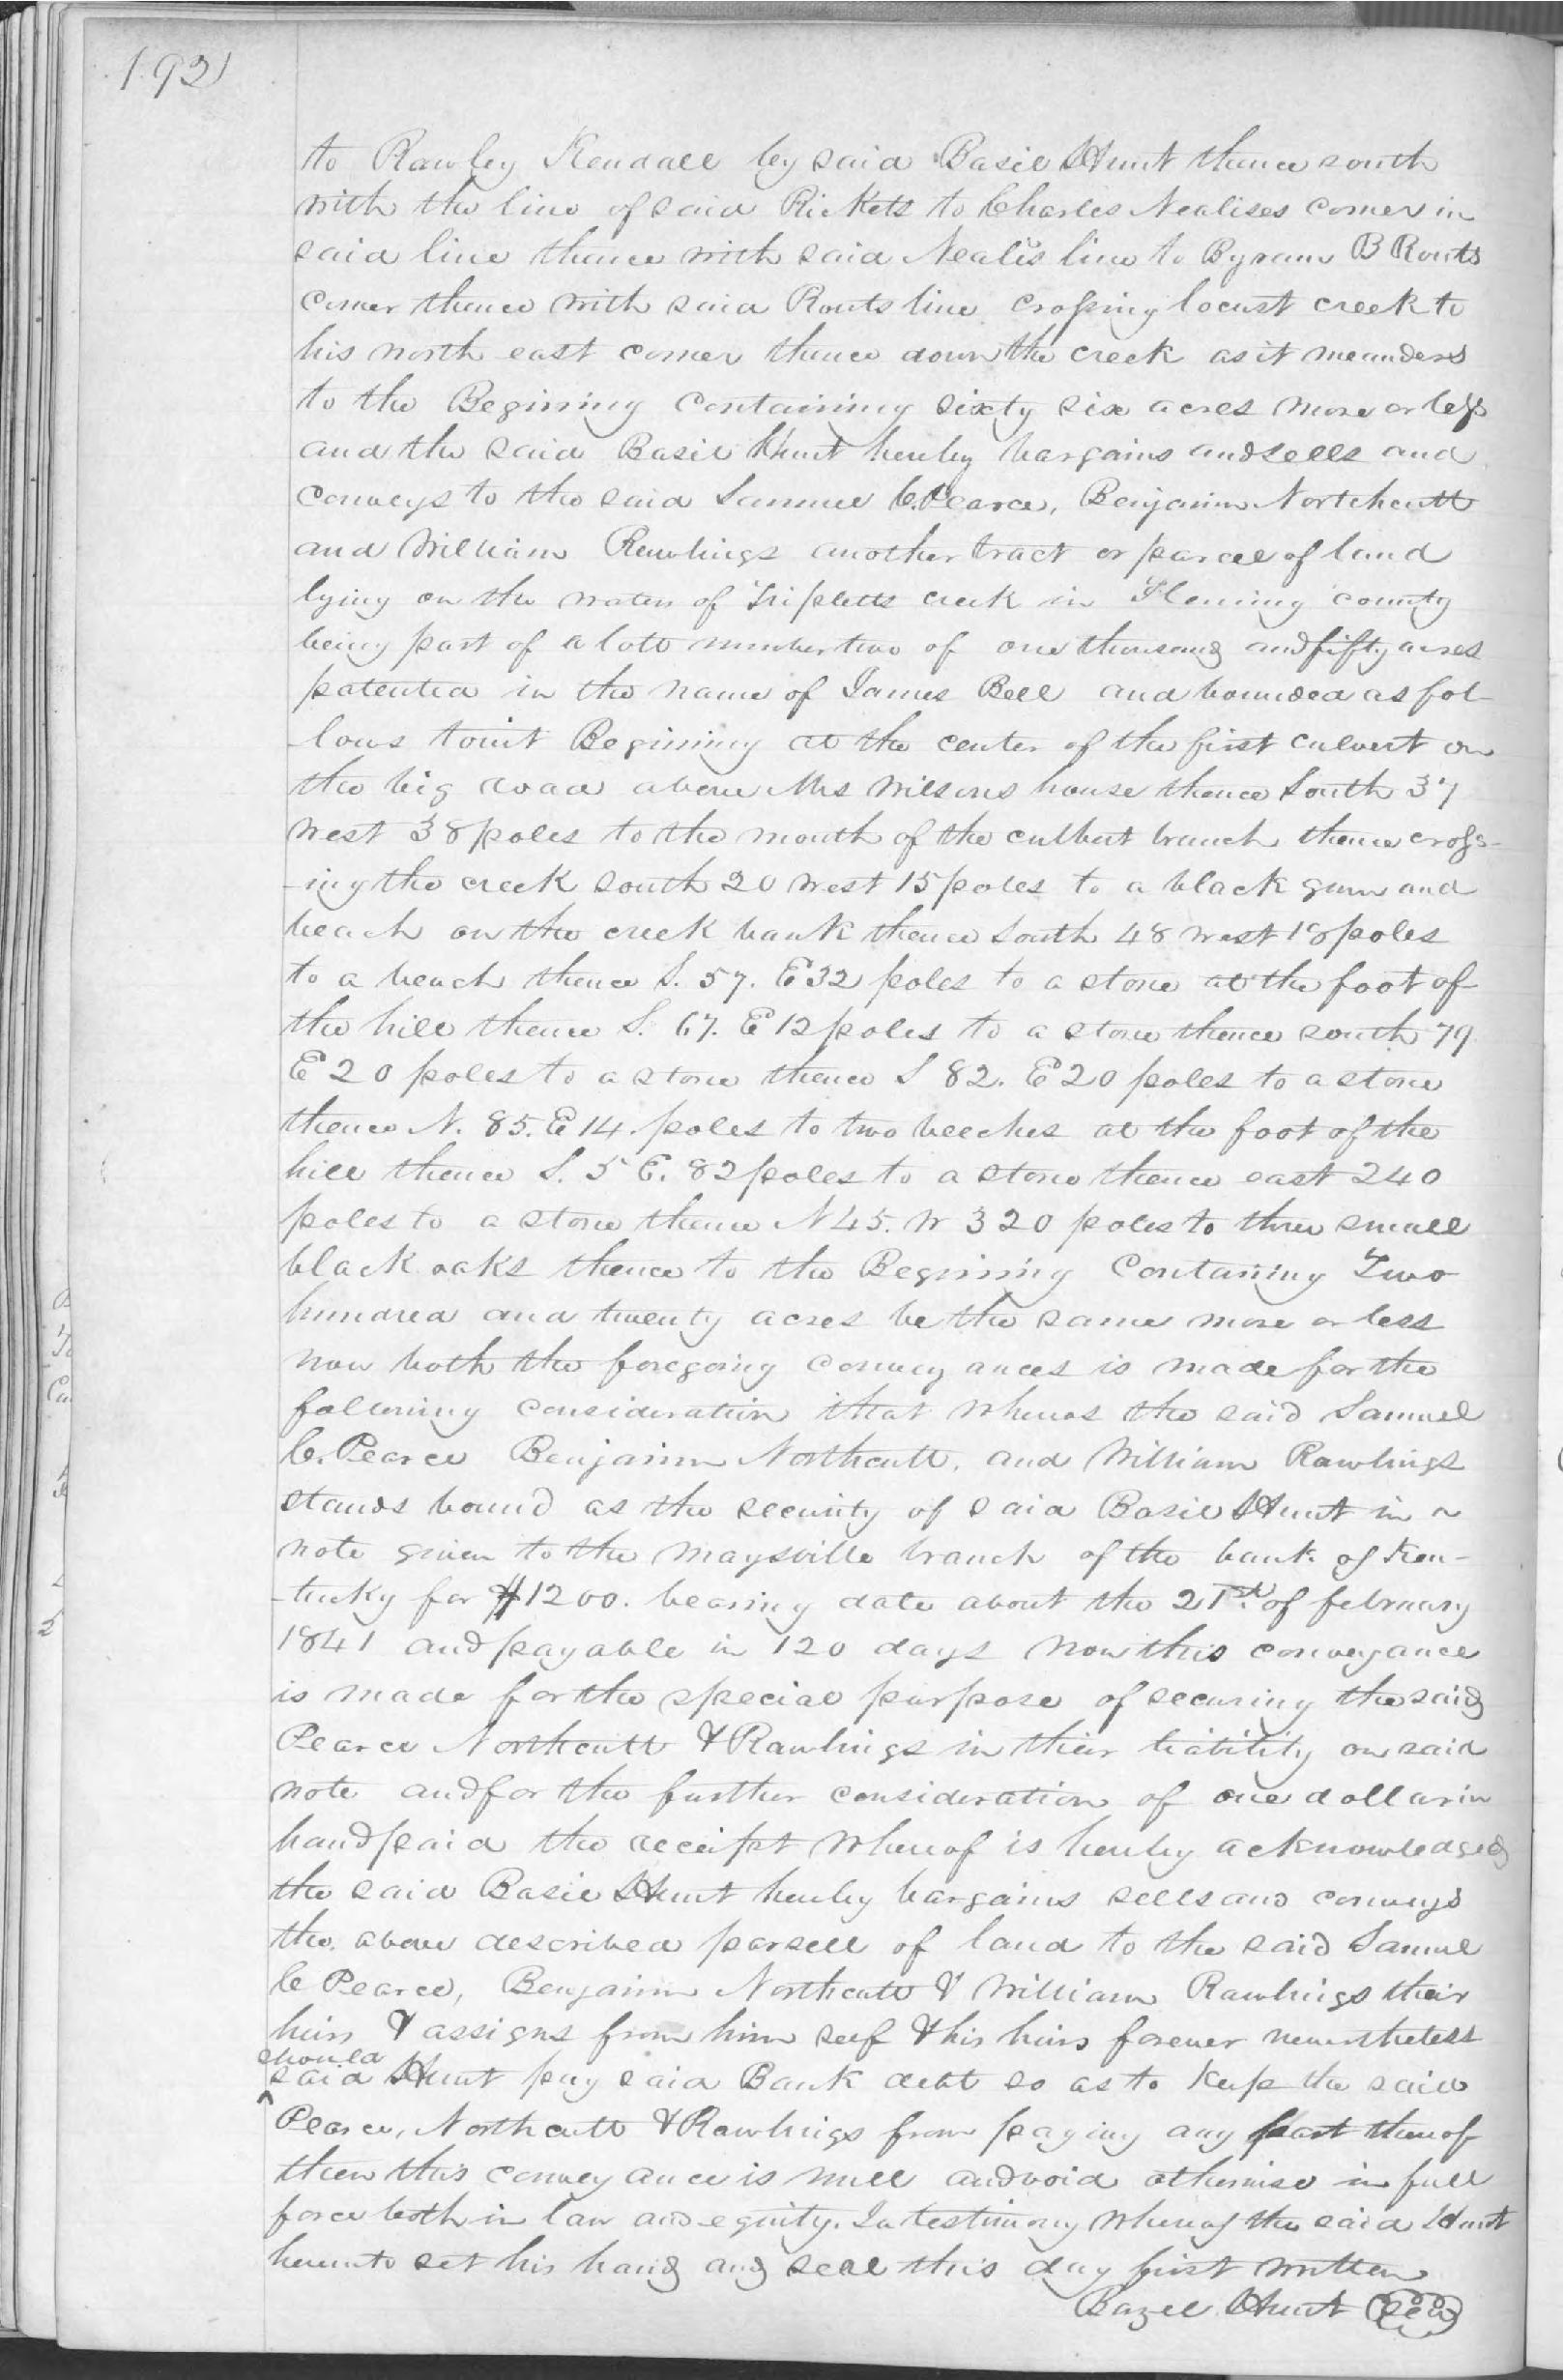 192
to Rawley Kendall by said Basil Hunt thence south
with the line of said Rickets to Charles Nealises corner in
said line thence with said Nealis line to Byram B Routs
corner thence with said Routs line crossing locust creek to
his north east corner thence down the creek as it meanders
to the Begining containing sixty six acres more or less
and the said Basil Hunt hereby bargains and sells and
conveys to the said Samuel C. Pearce, Benjamin Northcutt
and William Rawlings another tract or parcel of land
lying on the waters of Tripletts creek in Fleming county
being part of a lott number two of one thousand and fifty acres
patented in the name of James Bell and bounded as fol-
-lows towit Begining at the center of the first culvert on
the big road above Mrs Wilsons house thence South 37
West 38 poles to the mouth of the culbert branch thence cross-
-ing the creek south 20 west 15 poles to a black gum and
beach on the creek bank thence South 48 west 18 poles
to a beach thence S. 57. E 32 poles to a stone at the foot of
the hill thence S. 67. E 12 poles to a stone thence south 79
E 20 poles to a stone thence S 82. E 20 poles to a stone
thence N. 85. E 14. poles to two beeches at the foot of the
hill thence S. 5 E. 82 poles to a stone thence east 240
poles to a stone thence N 45. W 320 poles to three small
black oaks thence to the Begining Contaning Two
hundred and twenty acres be the same more or less
now both the foregoing conveyances is made for the
following consideration that whereas the said Samuel
C. Pearce Benjamin Northcutt, and William Rawlings
stands bound as the security of said Basil Hunt in a
note given to the Maysville branch of the bank of Ken-
-tucky for $1200. bearing date about the 21st of february
1841 and payable in 120 days now this conveyance
is made for the special purpose of securing the said
Pearce Northcutt & Rawlings in their liability on said
note and for the further consideration of one dollar in
hand paid the receipt whereof is hereby acknowledged
the said Basil Hunt hereby bargains sells and conveys
the above described parsell of land to the said Samuel
C Pearce, Benjamin Northcutt & William Rawlings their
heirs & assigns from him self & his heirs forever nevertheless
should
said Hunt pay said Bank debt so as to keep the said
Pearce, Northcutt & Rawlings from paying any part thereof
then this conveyance is null and void otherwise in full
force both in law and equity. In testimony whereof the said Hunt
hereunto set his hand and seal this day first written
Bazel Hunt Seal